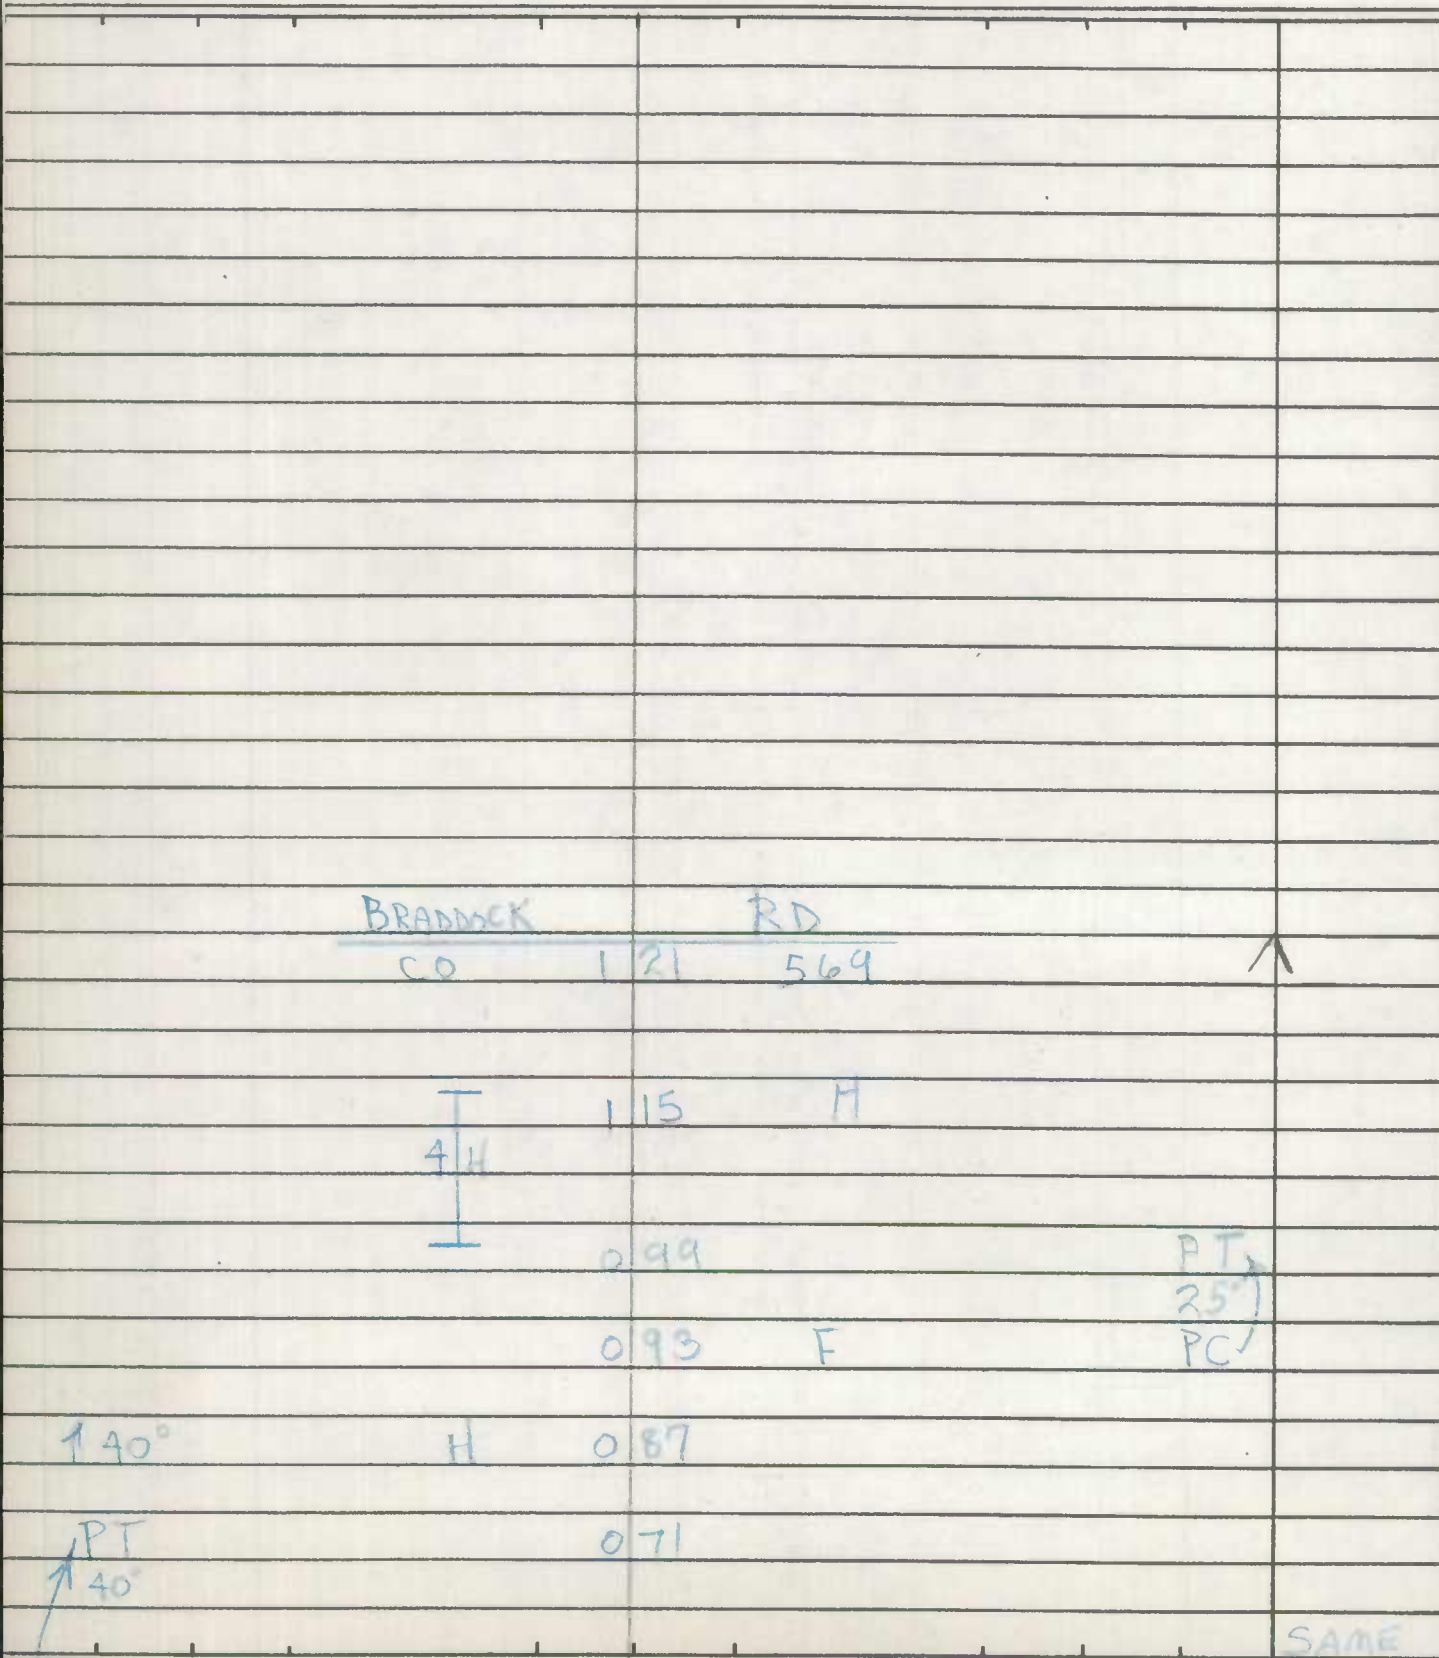 BRADDOCK RD
CO 1 21 569
1 15 H
4 H
0 99 PT
25°
0 93 F PC
40° H 0 87
PT 0 71
40°
SAME